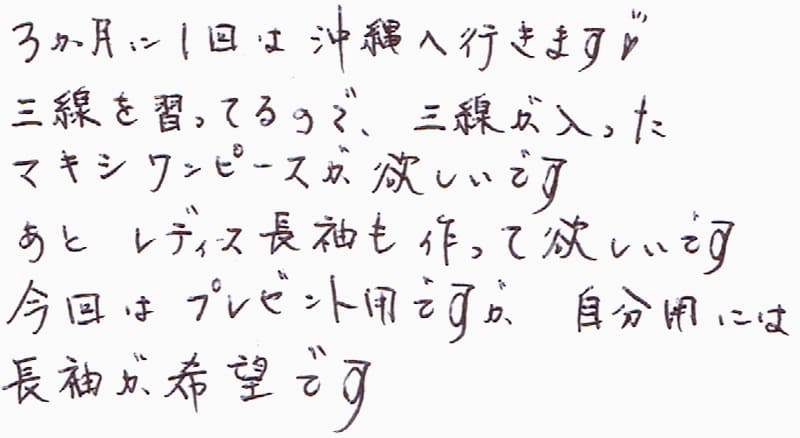 3か月に1回は沖縄へ行きます♡
三線を習ってるので、三線が入った
マキシワンピースが欲しいです
あと レディス長袖も作って欲しいです
今回はプレゼント用ですが、自分用には
長袖が希望です